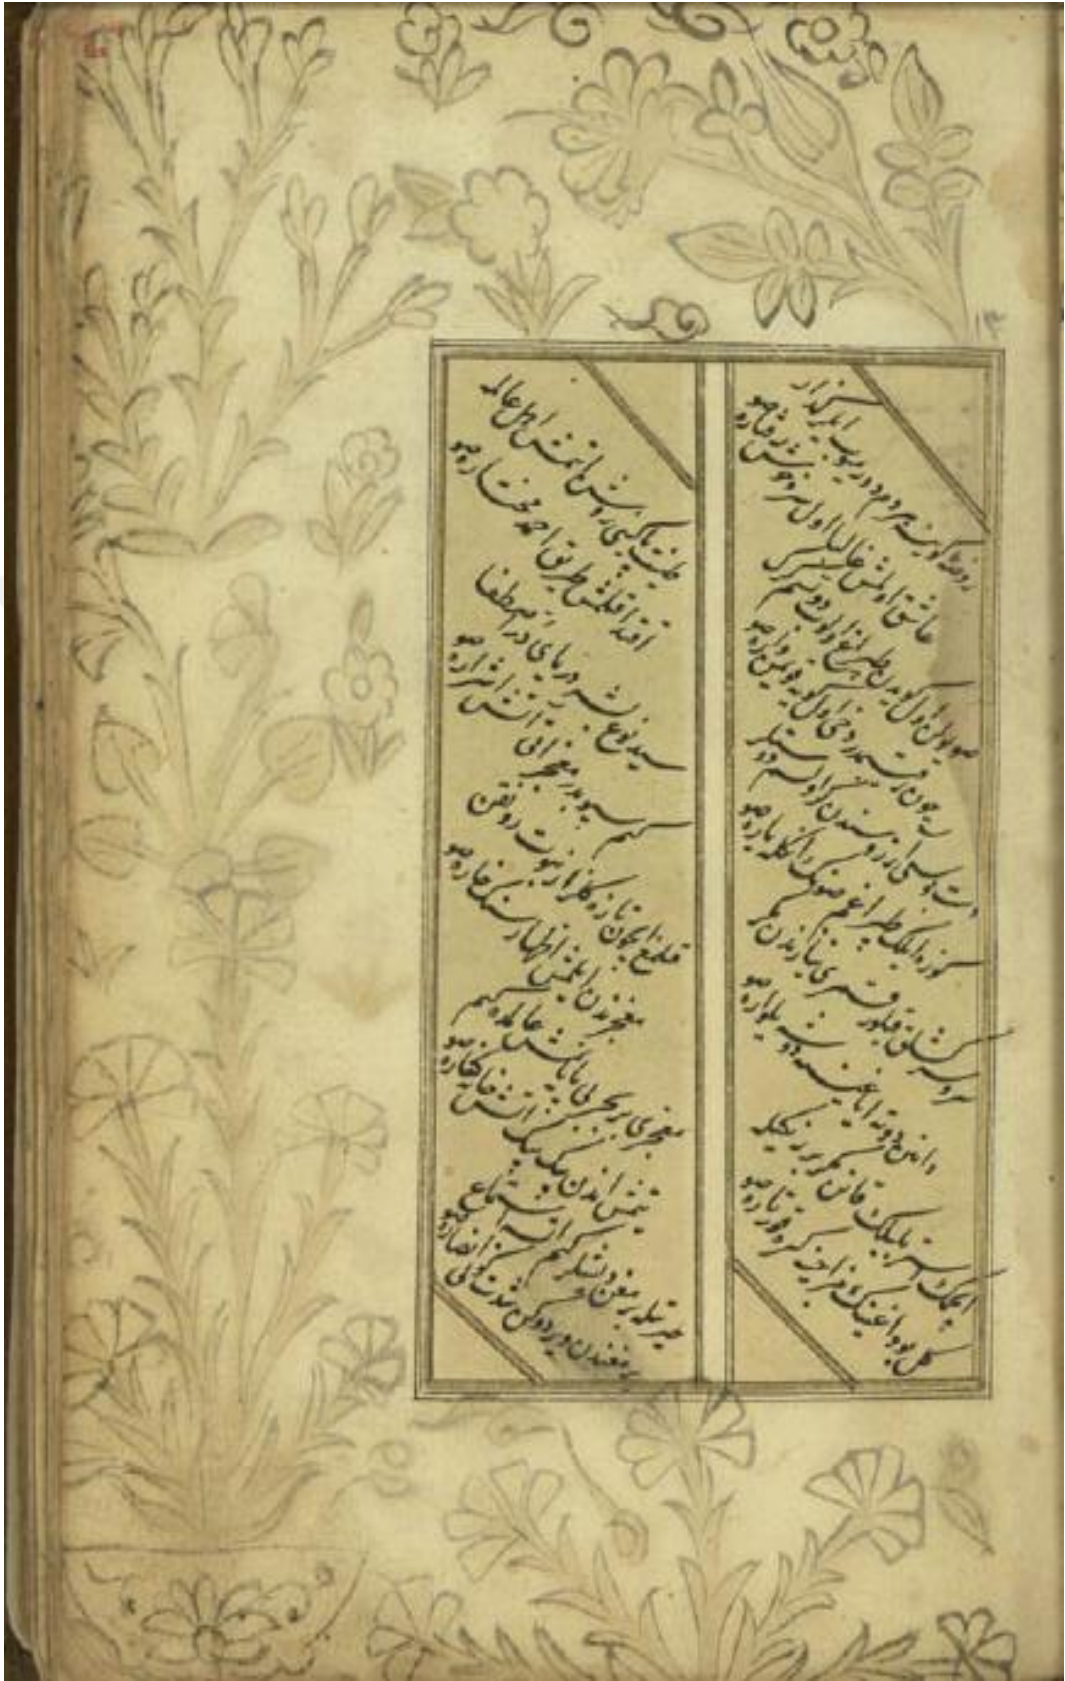 ۱۳
روضهٔ کوینه هر دم دورمیوب ایلر کذار
عاشق اولمش غالبا اول سرو خوش رفتاره صو
صو یولن اول کویدن طپراغ اولوب دوتسم کرک
چون رقیبمدر دخی اول کویه قویمن واره صو
دست بوسی آرزوسندن کر اولسم دوستلر
کوزه ایلک طپراغم صونک انکله یاره صو
سرو سرکشلق قیلور قمری نیازندن مکر
دامنن دوته ایاغینه دوشه یلواره صو
ایچمک ایستر بلبلک قانن مکر بر رنکیله
کل بوداغینک مزاجنه کیره قورتاره صو
طینت پاکینی روشن ایتمش اهل عالمه
اقتدا قلمش طریق احمد مختاره صو
سید نوع بشر دریای در اصطفا
کیم سپوبدر معجزاتی آتش اشراره صو
قلمغ ایچون تازه کلزار نبوت رونقن
معجزندن ایلمش اظهار سنک خاره صو
معجزی بر بحر بی پایانمش عالمده کیم
یتمش اندن بیک بیک آتشخانه کفاره صو
حیرتیله برمغن دیشلر کیم ایتسه استماع
برمغندن ویردوکن شدت کونی انصاره صو